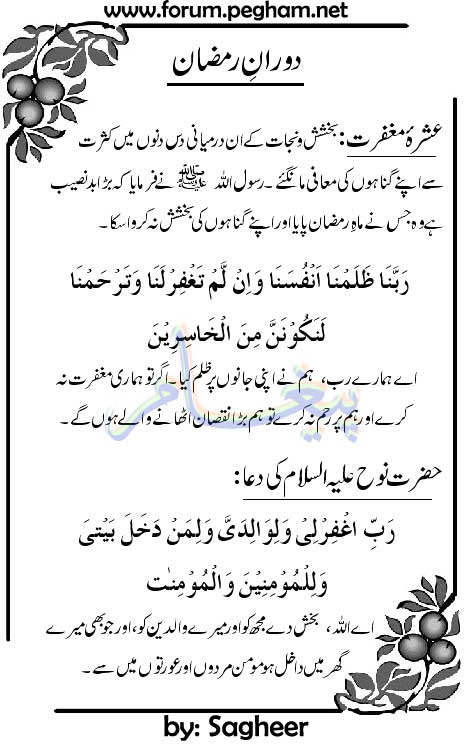 www.forum.pegham.net
دورانِ رمضان
عشرۂ مغفرت: بخشش و نجات کے ان درمیانی دس دنوں میں کثرت
سے اپنے گناہوں کی معافی مانگئے۔ رسول اللہ ﷺ نے فرمایا کہ بڑا بدنصیب
ہے وہ جس نے ماہِ رمضان پایا اور اپنے گناہوں کی بخشش نہ کروا سکا۔
رَبَّنَا ظَلَمْنَا اَنْفُسَنَا وَاِنْ لَّمْ تَغْفِرْلَنَا وَتَرْحَمْنَا
لَنَكُوْنَنَّ مِنَ الْخَاسِرِيْنَ
اے ہمارے رب، ہم نے اپنی جانوں پر ظلم کیا۔ اگر تو ہماری مغفرت نہ
کرے اور ہم پر رحم نہ کرے تو ہم بڑا نقصان اٹھانے والے ہوں گے۔
پیغام
حضرت نوح علیہ السلام کی دعا:
رَبِّ اغْفِرْلِىْ وَلِوَالِدَىَّ وَلِمَنْ دَخَلَ بَيْتِىَ
وَلِلْمُؤْمِنِيْنَ وَالْمُؤْمِنٰت
اے اللہ، بخش دے مجھ کو اور میرے والدین کو، اور جو بھی میرے
گھر میں داخل ہو مومن مردوں اور عورتوں میں سے۔
by: Sagheer